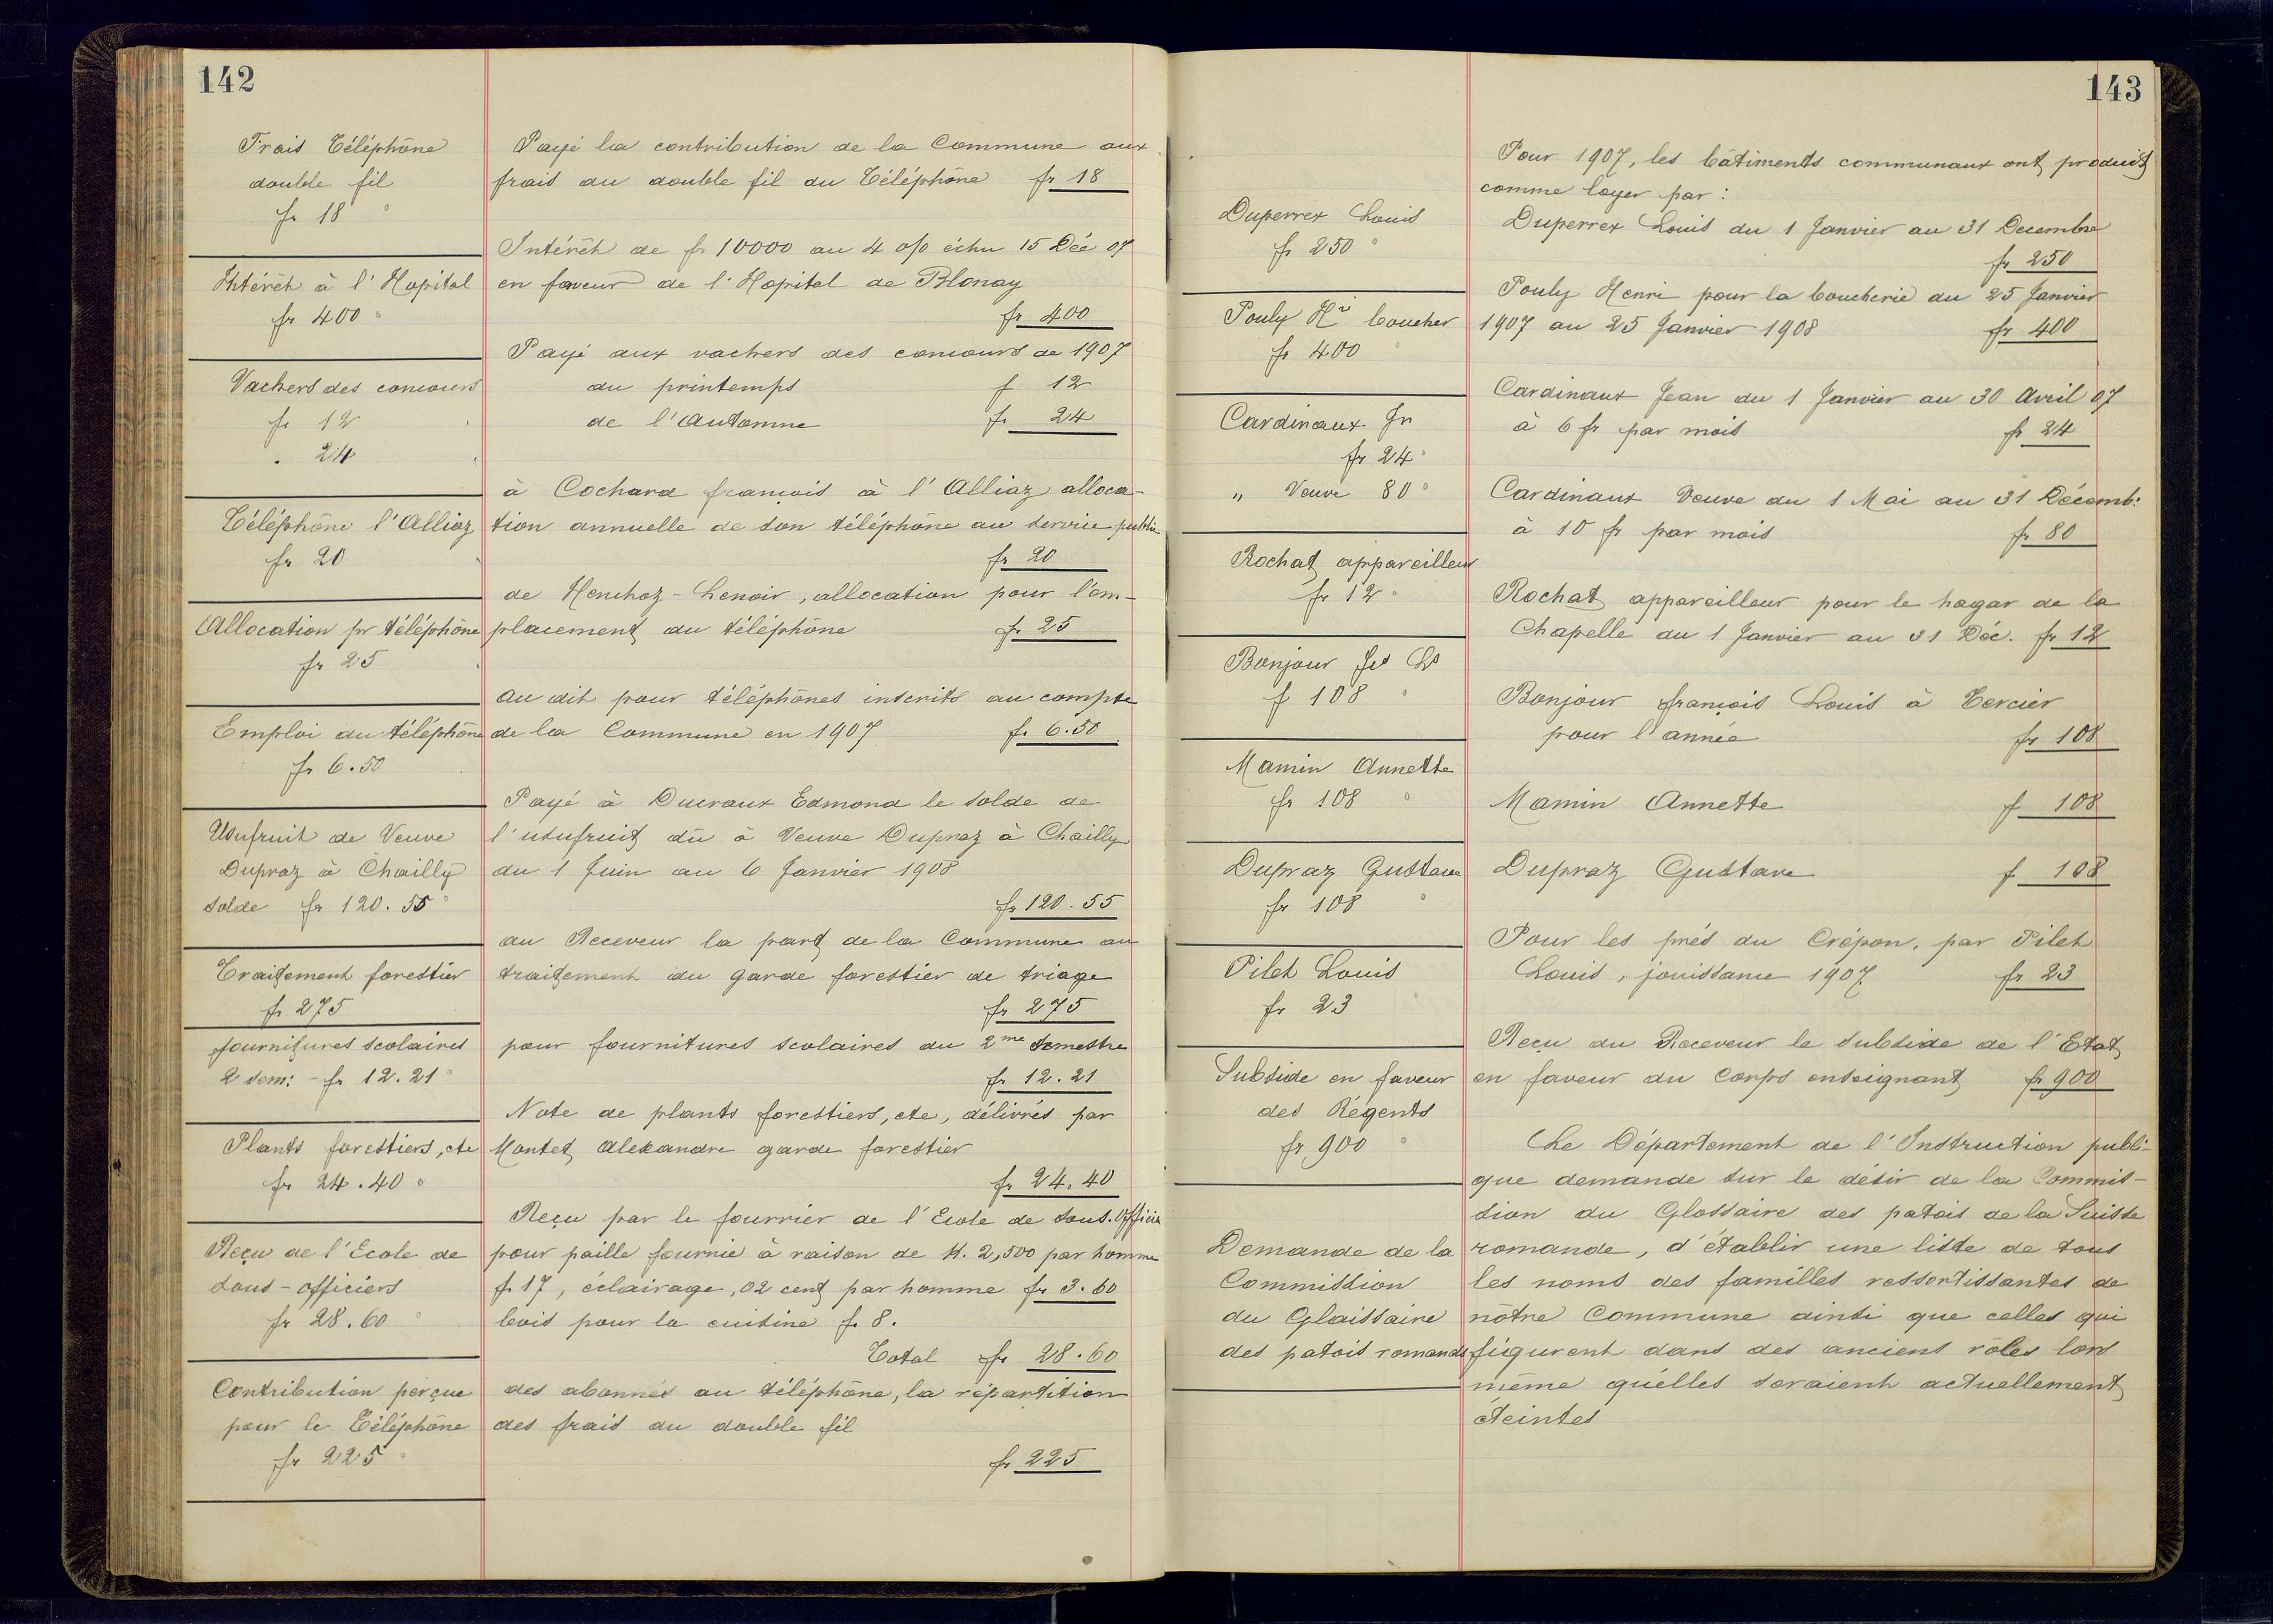 142
Frais Téléphône
double fil
fr 18
Intérêt à l'Hopital
fr 400
Vachers des concours
fr 12
" 24
Téléphône l'Alliaz
fr 20
Allocation pr téléphône
fr 25
Emploi du téléphône
fr 6.50
Usufruit de Veuve
Dupraz à Chailly
solde fr 120.55
Traitement forestier
fr 275
fournitures scolaires
2 sem: - fr 12.21
Plants forestiers, etc
fr 24.40
Reçu de l'Ecole de
sous-officiers
fr 28.60
Contribution perçue
pour le Téléphône
fr 225
Payé la contribution de la Commune aux
frais du double fil du Téléphône fr 18
Intérêt de fr 10000 au 4 o/o échu 15 Déc 07
en faveur de l'Hopital de Blonay
fr 400
Payé aux vachers des concours de 1907
du printemps f 12
de l'Automne fr 24
à Cochard françois à l'Alliaz alloca-
tion annuelle de son téléphône au service public
fr 20
de Henchoz-Lenoir, allocation pour l'em-
placement du téléphône fr 25
au dit pour téléphônes inscrits au compte
de la Commune en 1907 fr 6.50
Payé à Ducraux Edmond le solde de
l'usufruit dû à Veuve Dupraz à Chailly
du 1 Juin au 6 Janvier 1908
fr 120.55
au Receveur la part de la Commune au
traitement du garde forestier de triage
fr 275
pour fournitures scolaires du 2me semestre
fr 12.21
Note de plants forestiers, etc, délivrés par
Montet Alexandre garde forestier
fr 24.40
Reçu par le fourrier de l'Ecole de sous.officiers
pour paille fournie à raison de K. 2,500 par homme
fr 17, éclairage, 02 cent par homme fr 3.60
bois pour la cuisine fr 8.
Total fr 28.60
des abonnés au téléphône, la répartition
des frais du double fil
fr 225
143
Duperrex Louis
fr 250
Pouly Hri boucher
fr 400
Cardinaux Jn
fr 24
" Veuve 80
Rochat appareilleur
fr 12
Bonjour fçs Ls
f 108
Mamin Annette
fr 108
Dupraz Gustave
fr 108
Pilet Louis
fr 23
Subside en faveur
des Régents
fr 900
Demande de la
Commission
du Glaissaire
des patois romands
Pour 1907, les bâtiments communaux ont produit
comme loyer par:
Duperrex Louis du 1 Janvier au 31 Decembre
fr 250
Pouly Henri pour la boucherie du 25 Janvier
1907 au 25 Janvier 1908 fr 400
Cardinaux Jean du 1 Janvier au 30 Avril 07
à 6 fr par mois fr 24
Cardinaux Veuve du 1 Mai au 31 Décemb:
à 10 fr par mois fr 80
Rochat appareilleur pour le hagar de la
Chapelle du 1 Janvier au 31 Déc. fr 12
Bonjour françois Louis à Tercier
pour l'année fr 108
Mamin Annette f 108
Dupraz Gustave f 108
Pour les prés du Crépon, par Pilet
Louis, jouissance 1907 fr 23
Reçu du Receveur le subside de l'Etat
en faveur du Corps enseignant fr 900
Le Département de l'Instruction publi-
que demande sur le désir de la Commis-
sion du Glossaire des patois de la Suisse
romande, d'établir une liste de tous
les noms des familles ressortissantes de
nôtre Commune ainsi que celles qui
figurent dans des anciens rôles lors
même qu'elles seraient actuellement
éteintes